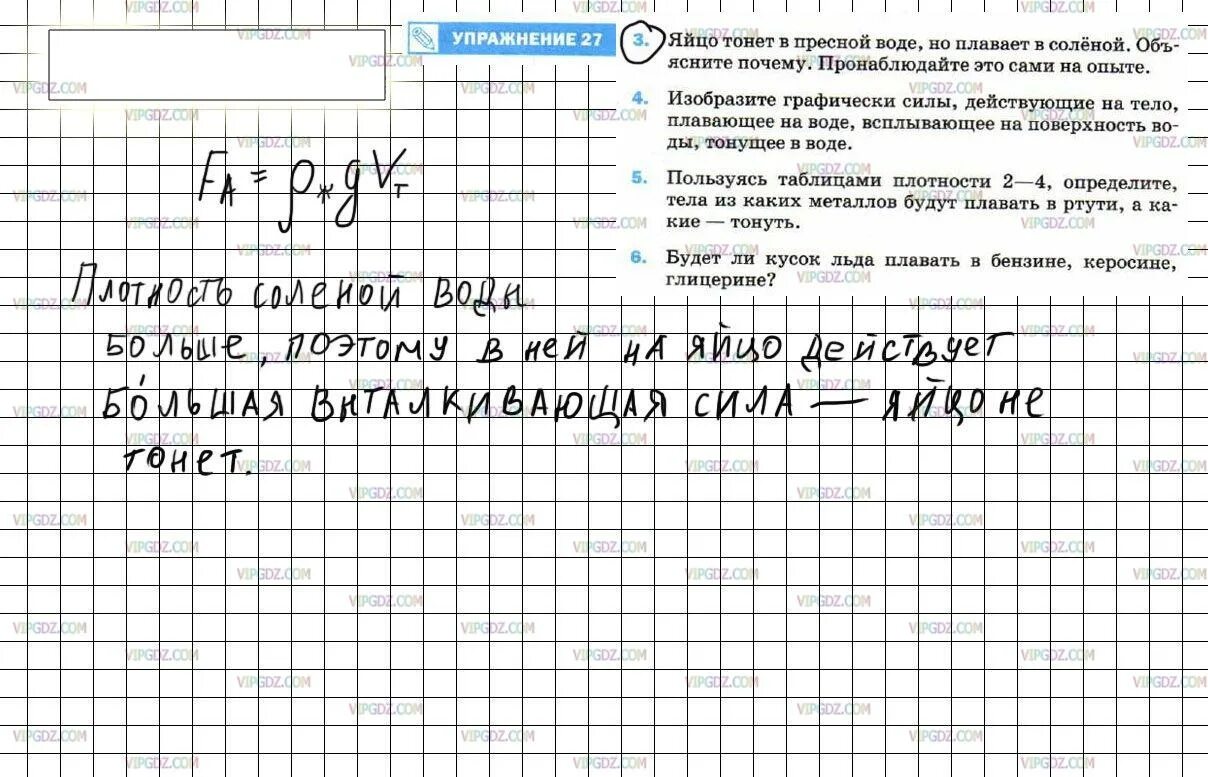 УПРАЖНЕНИЕ 27
3. Яйцо тонет в пресной воде, но плавает в солёной. Объ-
ясните почему. Пронаблюдайте это сами на опыте.
4. Изобразите графически силы, действующие на тело,
плавающее на воде, всплывающее на поверхность во-
ды, тонущее в воде.
5. Пользуясь таблицами плотности 2—4, определите,
тела из каких металлов будут плавать в ртути, а ка-
кие — тонуть.
6. Будет ли кусок льда плавать в бензине, керосине,
глицерине?
FА = ρж g Vт
Плотность соленой воды
больше, поэтому в ней на яйцо действует
бо́льшая выталкивающая сила — яйцо не
тонет.
VIPGDZ.COM